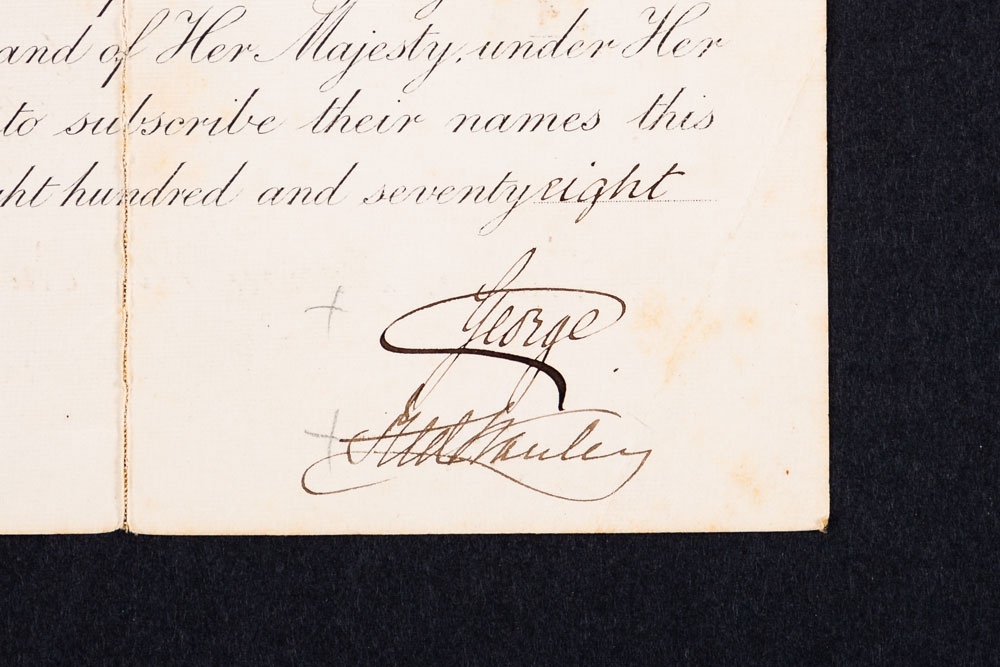 and of Her Majesty, under Her
to subscribe their names this
ght hundred and seventy eight
George
Stanley